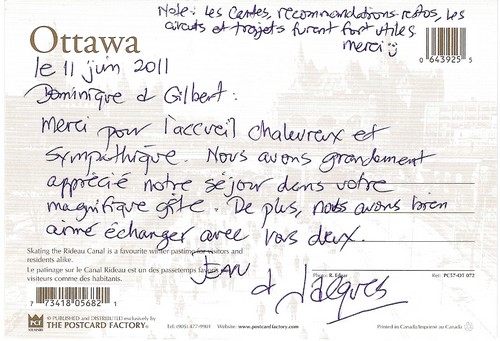 Note: Les cartes, recommandations-restos, les
circuits et trajets furent fort utiles
merci
Ottawa
0 643925 5
le 11 juin 2011
Dominique et Gilbert:
Merci pour l'accueil chaleureux et
sympathique. Nous avons grandement
apprécié notre séjour dans votre
magnifique gîte. De plus, nous avons bien
aimé échanger avec vous deux.
Skating the Rideau Canal is a favourite winter pastime for visitors and
residents alike.
Le patinage sur le Canal Rideau est un des passetemps favoris
visiteurs comme des habitants.
Photo: R.
Ref: PC57-OT 072
JEAN
et Jacques
7 73418 05682 1
PCF
© PUBLISHED and DISTRIBUTED exclusively by
THE POSTCARD FACTORY
Tel: (905) 477-9901 Website: www.postcardfactory.com
Printed in Canada/Imprimé au Canada